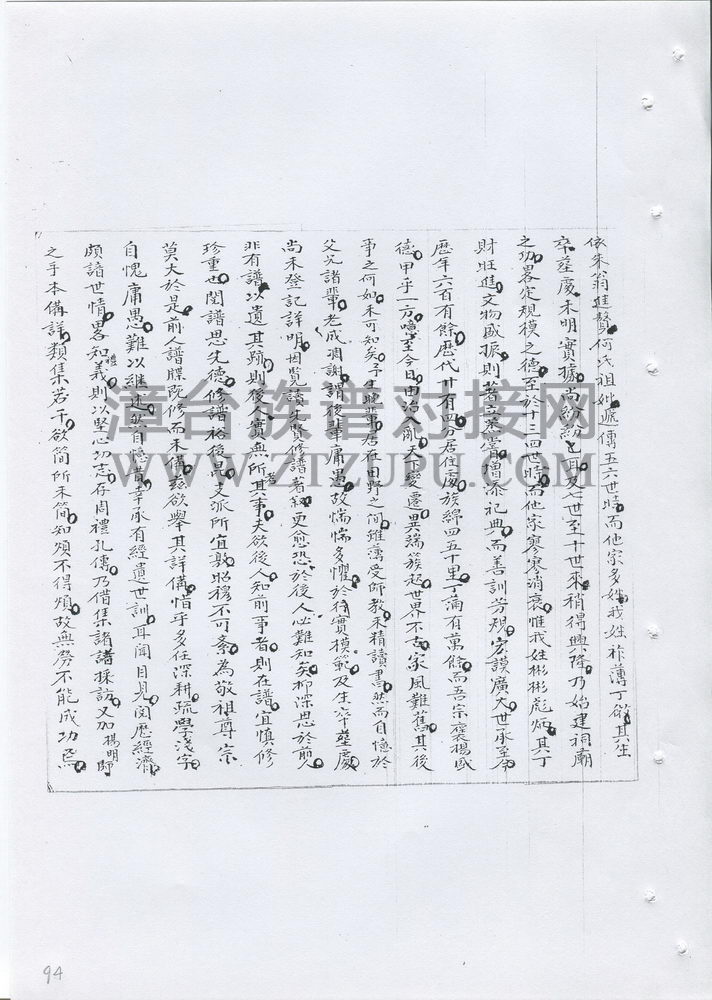 依朱翁進賢何氏祖妣遞傳五六世時而他家多姓我姓祚薄丁歉其生
卒塟處未明實據尚紛紛七世至十世來稍得興隆乃始建祠廟
之功畧定規模之德至於十三四世時而他家寥寥消衰惟我姓彬彬彪炳其丁
財旺進文物盛振則著烝嘗增添祀典而善訓芳規宏謨廣大世承至今
歷年六百有餘歷代廿有四分居住處族綿四五十里丁滿有萬餘而吾宗褒揚盛
德甲乎一方噫至今日由治入亂天下變遷異端簇起世界不古家風難舊其後
事之何如未可知矣予生晚輩居在田野之間雖薄受師教未精讀書然而自憶於
父兄諸輩老成凋謝謂後輩庸愚故惴惴多懼於待實模範及生卒塟處
尚未登記詳明因覽讀朱賢修譜者叙更愈恐於後人必難知矣抑深思於前人
非有譜以遺其跡則後人實無所考其事夫欲後人知前事者則在譜宜慎修
珍重也閱譜思先德修譜裕後昆支派所宜敦昭穆不可紊為敬祖尊宗
莫大於是前人譜牒既修而未備茲欲舉其詳備惜乎多任深耕疏學淺字
自愧庸愚難以繼述然自憶昔幸承有經遺世訓耳聞目見閱歷經濟
頗諳世情畧知禮義則以堅心切志存周禮孔傳乃借集諸譜採訪又加楊明師
之手本備詳類集若干欲簡所未簡知煩不得煩故無勞不能成功焉
漳台族普对接网
WWW.ZTZUPU.COM
94